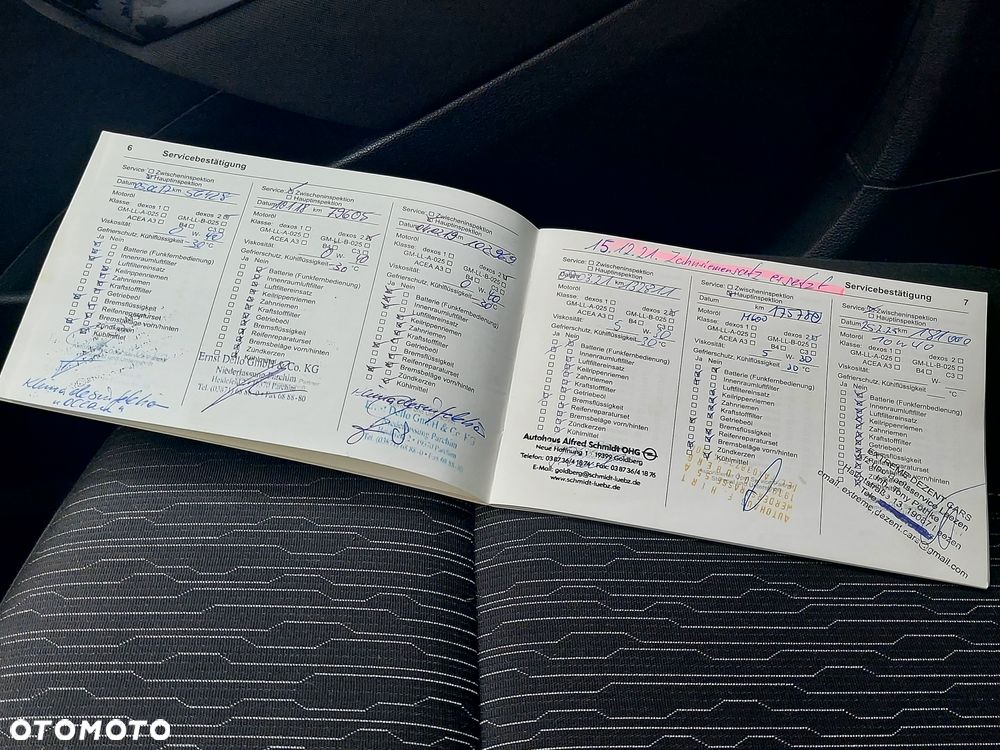 6 Servicebestätigung
Service: Zwischeninspektion
Hauptinspektion
Datum km 56428
Motoröl
Klasse: dexos 1 dexos 2
GM-LL-A-025 GM-LL-B-025
ACEA A3 B4 C3
Viskosität: 0 W 40
Gefrierschutz, Kühlflüssigkeit -30 °C
Ja Nein
Batterie (Funkfernbedienung)
Innenraumluftfilter
Luftfiltereinsatz
Keilrippenriemen
Zahnriemen
Kraftstofffilter
Getriebeöl
Bremsflüssigkeit
Reifenreparaturset
Bremsbeläge vorn/hinten
Zündkerzen
Kühlmittel
Klimadesinfektion
Service: Zwischeninspektion
Hauptinspektion
Datum km 79605
Motoröl
Klasse: dexos 1 dexos 2
GM-LL-A-025 GM-LL-B-025
ACEA A3 B4 C3
Viskosität: 0 W 40
Gefrierschutz, Kühlflüssigkeit -30 °C
Ja Nein
Batterie (Funkfernbedienung)
Innenraumluftfilter
Luftfiltereinsatz
Keilrippenriemen
Zahnriemen
Kraftstofffilter
Getriebeöl
Bremsflüssigkeit
Reifenreparaturset
Bremsbeläge vorn/hinten
Zündkerzen
Kühlmittel
Ernst Dello GmbH & Co. KG
Niederlassung Parchim
Service: Zwischeninspektion
Hauptinspektion
Datum km 102969
Motoröl
Klasse: dexos 1 dexos 2
GM-LL-A-025 GM-LL-B-025
ACEA A3 B4 C3
Viskosität: 0 W 40
Gefrierschutz, Kühlflüssigkeit -30 °C
Ja Nein
Batterie (Funkfernbedienung)
Innenraumluftfilter
Luftfiltereinsatz
Keilrippenriemen
Zahnriemen
Kraftstofffilter
Getriebeöl
Bremsflüssigkeit
Reifenreparaturset
Bremsbeläge vorn/hinten
Zündkerzen
Kühlmittel
Klimadesinfektion
Dello GmbH & Co. KG
15.12.21. Zahnriemensatz ersetzt
Servicebestätigung 7
Service: Zwischeninspektion
Hauptinspektion
Datum km
Motoröl
Klasse: dexos 1 dexos 2
GM-LL-A-025 GM-LL-B-025
ACEA A3 B4 C3
Viskosität: 5 W 40
Gefrierschutz, Kühlflüssigkeit -30 °C
Ja Nein
Batterie (Funkfernbedienung)
Innenraumluftfilter
Luftfiltereinsatz
Keilrippenriemen
Zahnriemen
Kraftstofffilter
Getriebeöl
Bremsflüssigkeit
Reifenreparaturset
Bremsbeläge vorn/hinten
Zündkerzen
Kühlmittel
Autohaus Alfred Schmidt OHG
Neue Hoffnung 1 19399 Goldberg
Telefon: 03 87 36/4 18 74 Fax: 03 87 36/4 18 76
E-Mail: goldberg@schmidt-luebz.de
www.schmidt-luebz.de
Service: Zwischeninspektion
Hauptinspektion
Datum km 175780
Motoröl
Klasse: dexos 1 dexos 2
GM-LL-A-025 GM-LL-B-025
ACEA A3 B4 C3
Viskosität: 5 W 30
Gefrierschutz, Kühlflüssigkeit 30 °C
Ja Nein
Batterie (Funkfernbedienung)
Innenraumluftfilter
Luftfiltereinsatz
Keilrippenriemen
Zahnriemen
Kraftstofffilter
Getriebeöl
Bremsflüssigkeit
Reifenreparaturset
Bremsbeläge vorn/hinten
Zündkerzen
Kühlmittel
Service: Zwischeninspektion
Hauptinspektion
Datum 25.2.25 km
Motoröl 10 W 40
Klasse: dexos 1 dexos 2
GM-LL-A-025 GM-LL-B-025
ACEA A3 B4 C3
Viskosität: W
Gefrierschutz, Kühlflüssigkeit °C
Ja Nein
Batterie (Funkfernbedienung)
Innenraumluftfilter
Luftfiltereinsatz
Keilrippenriemen
Zahnriemen
Kraftstofffilter
Getriebeöl
Bremsflüssigkeit
Reifenreparaturset
Bremsbeläge vorn/hinten
Zündkerzen
Kühlmittel
EXTREME DEZENT CARS
email: extreme.dezent.cars@gmail.com
OTOMOTO